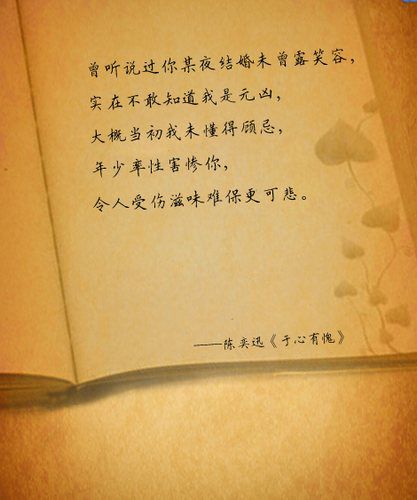 曾听说过你某夜结婚未曾露笑容，
实在不敢知道我是元凶，
大概当初我未懂得顾忌，
年少率性害惨你，
令人受伤滋味难保更可悲。
——陈奕迅《于心有愧》